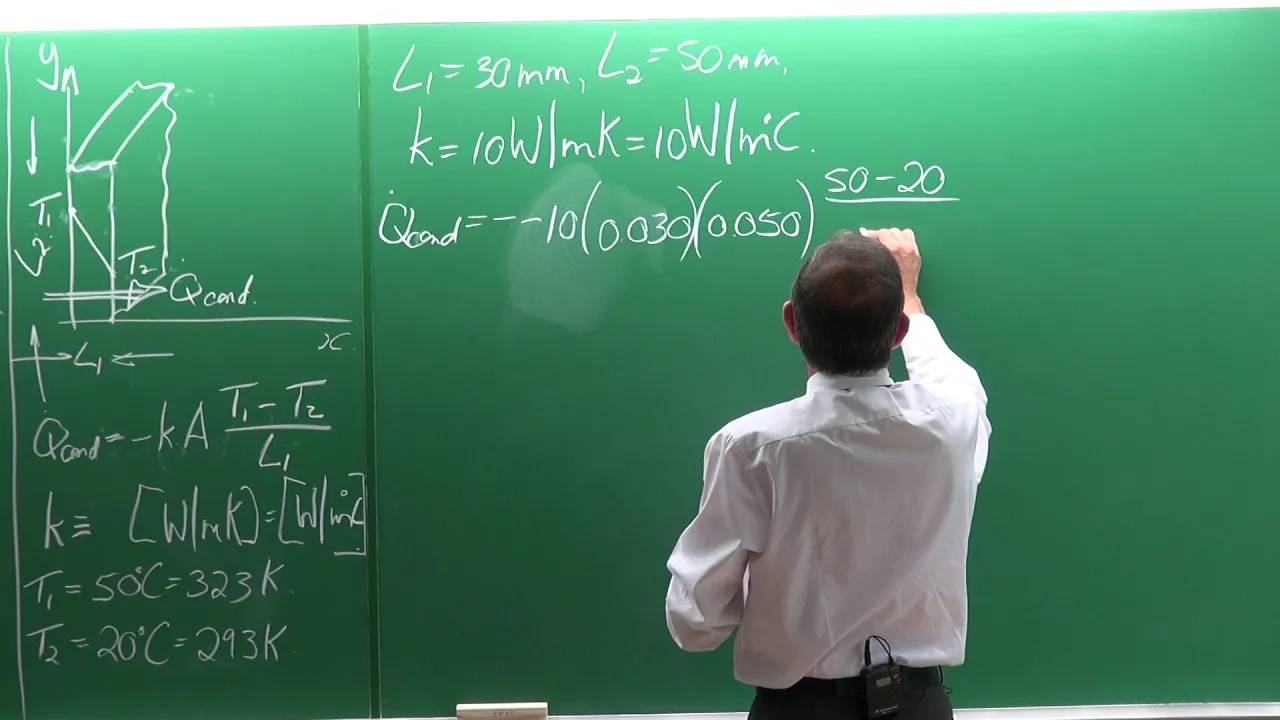 y
T₁
T₂
Q̇cond.
x
L₁
Q̇cond = -kA (T₁ - T₂)/L₁
k ≡ [W/mK] = [W/m°C]
T₁ = 50°C = 323K
T₂ = 20°C = 293K
L₁ = 30mm, L₂ = 50mm,
k = 10W/mK = 10W/m°C.
Q̇cond = - -10(0.030)(0.050) 50 - 20